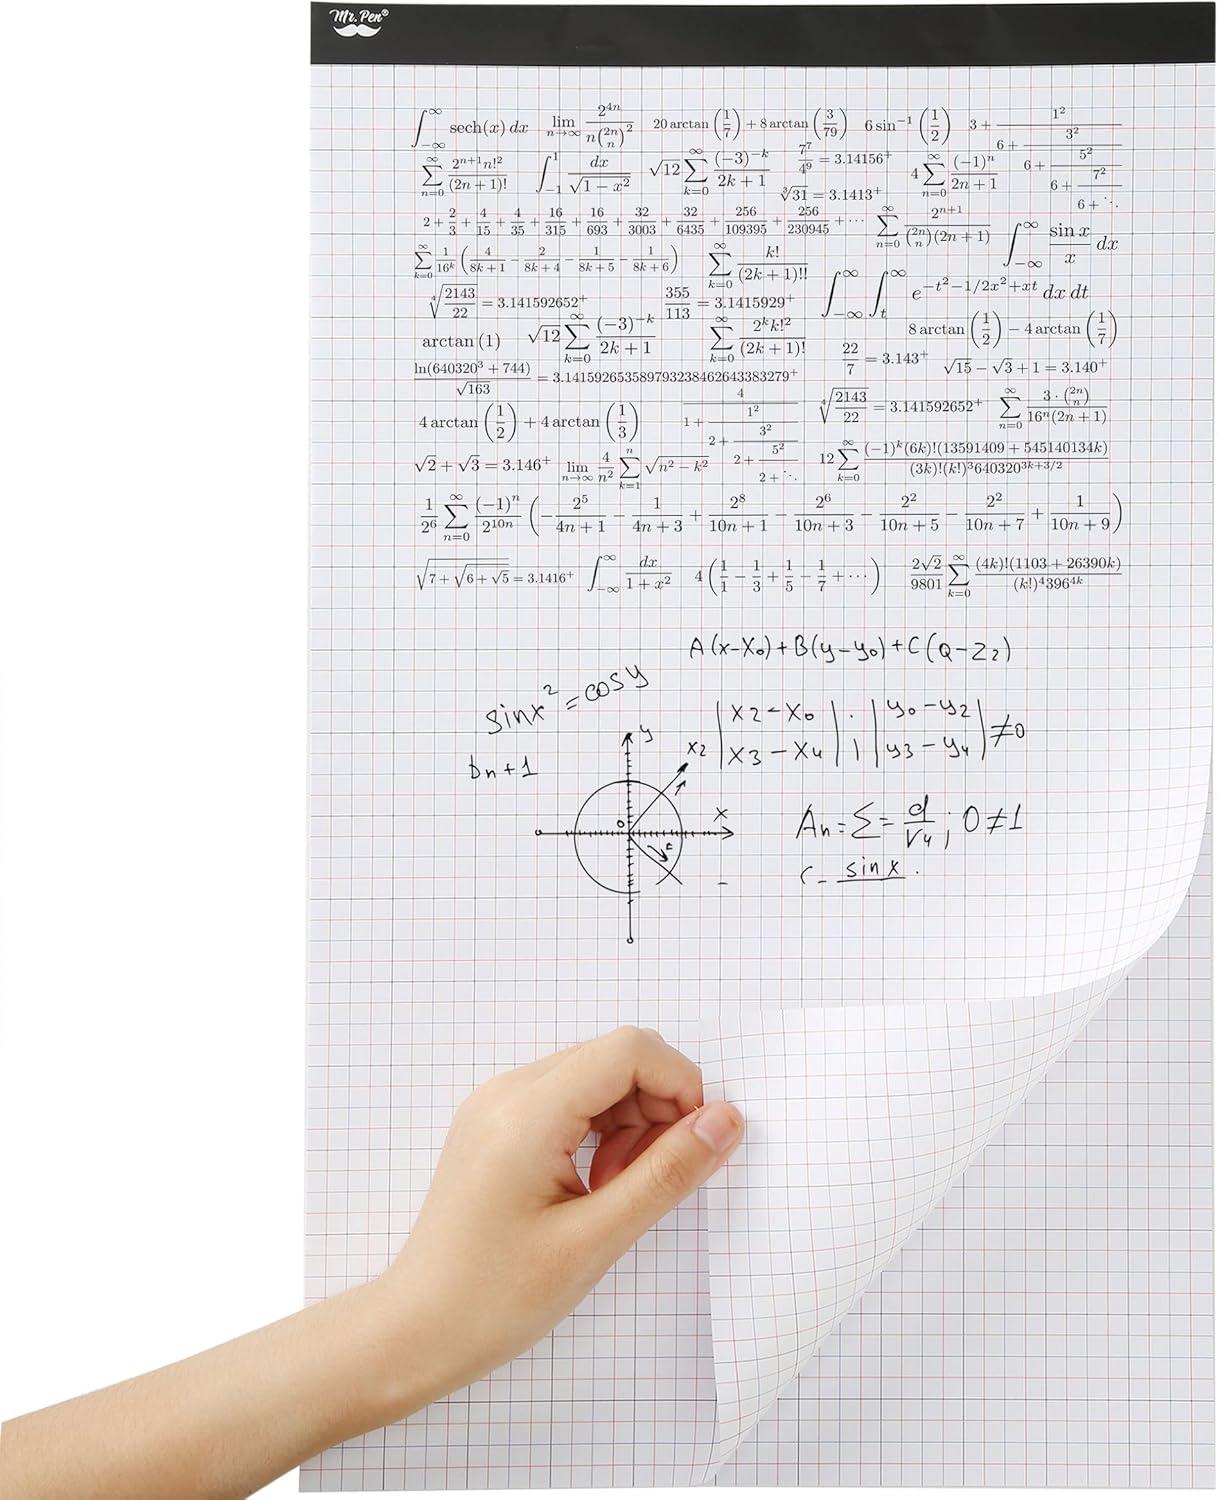 Mr. Pen®
∫_{-∞}^{∞} sech(x) dx   lim_{n→∞} 2^{4n}/(n(2n choose n)^2)   20 arctan(1/7) + 8 arctan(3/79)   6 sin^{-1}(1/2)   3 + 1^2/(6 + 3^2/(6 + 5^2/(6 + 7^2/(6 + ⋱))))
∑_{n=0}^{∞} 2^{n+1}n!^2/(2n+1)!   ∫_{-1}^{1} dx/√(1 − x^2)   √12 ∑_{k=0}^{∞} (−3)^{−k}/(2k+1)   7^7/4^9 = 3.14156^+   4 ∑_{n=0}^{∞} (−1)^n/(2n+1)
∛31 = 3.1413^+
2 + 2/3 + 4/15 + 4/35 + 16/315 + 16/693 + 32/3003 + 32/6435 + 256/109395 + 256/230945 + ⋯   ∑_{n=0}^{∞} 2^{n+1}/((2n choose n)(2n+1))   ∫_{-∞}^{∞} sin x/x dx
∑_{k=0}^{∞} 1/16^k (4/(8k+1) − 2/(8k+4) − 1/(8k+5) − 1/(8k+6))   ∑_{k=0}^{∞} k!/(2k+1)!!
∜(2143/22) = 3.141592652^+   355/113 = 3.1415929^+   ∫_{-∞}^{∞} ∫_{t}^{∞} e^{−t^2−1/2x^2+xt} dx dt
arctan(1)   √12 ∑_{k=0}^{∞} (−3)^{−k}/(2k+1)   ∑_{k=0}^{∞} 2^k k!^2/(2k+1)!   8 arctan(1/2) − 4 arctan(1/7)
22/7 = 3.143^+   √15 − √3 + 1 = 3.140^+
ln(640320^3 + 744)/√163 = 3.141592653589793238462643383279^+
4 arctan(1/2) + 4 arctan(1/3)   4/(1 + 1^2/(2 + 3^2/(2 + 5^2/(2 + ⋱))))   ∜(2143/22) = 3.141592652^+   ∑_{n=0}^{∞} 3·(2n choose n)/(16^n(2n+1))
√2 + √3 = 3.146^+   lim_{n→∞} 4/n^2 ∑_{k=1}^{n} √(n^2 − k^2)   12 ∑_{k=0}^{∞} (−1)^k(6k)!(13591409 + 545140134k)/((3k)!(k!)^3 640320^{3k+3/2})
1/2^6 ∑_{n=0}^{∞} (−1)^n/2^{10n} (−2^5/(4n+1) − 1/(4n+3) + 2^8/(10n+1) − 2^6/(10n+3) − 2^2/(10n+5) − 2^2/(10n+7) + 1/(10n+9))
√(7 + √(6 + √5)) = 3.1416^+   ∫_{-∞}^{∞} dx/(1 + x^2)   4(1/1 − 1/3 + 1/5 − 1/7 + ⋯)   2√2/9801 ∑_{k=0}^{∞} (4k)!(1103 + 26390k)/((k!)^4 396^{4k})
A(x−X₀)+B(y−y₀)+C(Q−Z₂)
sinx² = cosy
|X2−X₀| . |y₀−y2|
|X3−X4| | |y3−y4| ≠0
bn+1
y
x2
x
o
An = Σ = d/√4 ; 0≠1
C − sinx .